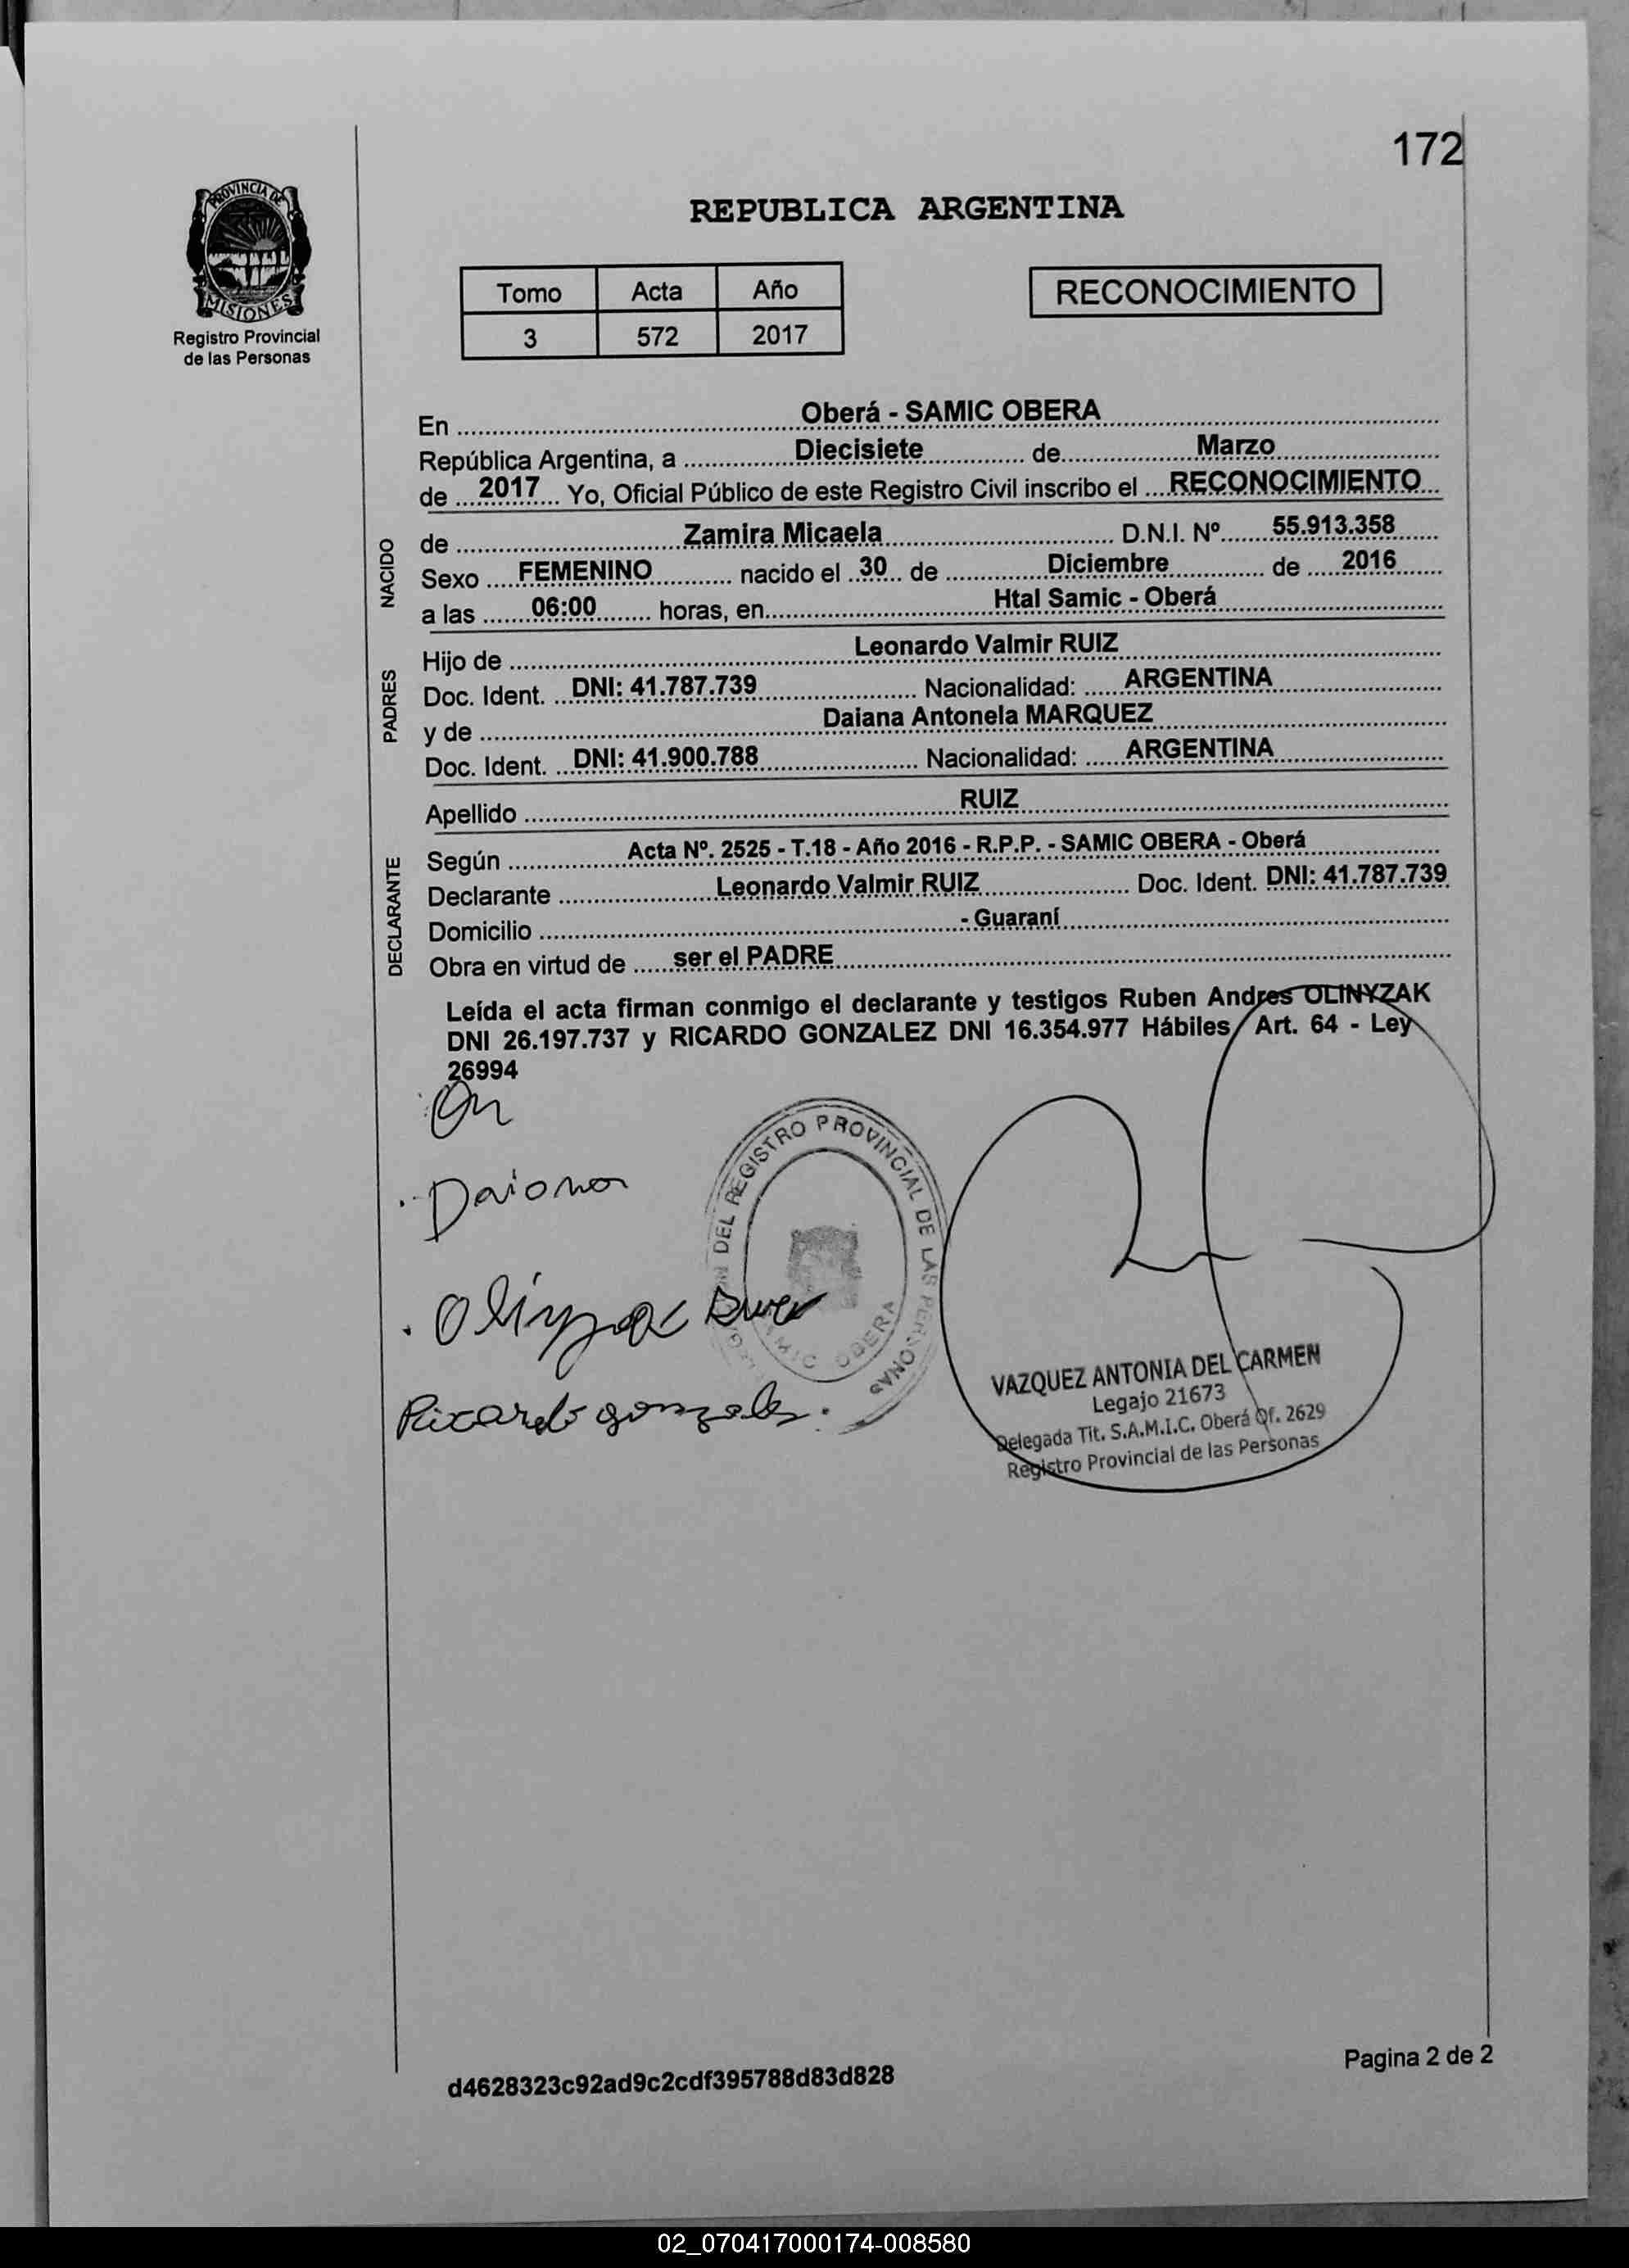 172
PROVINCIA DE
MISIONES
Registro Provincial
de las Personas
REPUBLICA ARGENTINA
Tomo Acta Año
3 572 2017
RECONOCIMIENTO
En Oberá - SAMIC OBERA
República Argentina, a Diecisiete de Marzo
de 2017 Yo, Oficial Público de este Registro Civil inscribo el RECONOCIMIENTO
NACIDO
de Zamira Micaela D.N.I. Nº 55.913.358
Sexo FEMENINO nacido el 30 de Diciembre de 2016
a las 06:00 horas, en Htal Samic - Oberá
PADRES
Hijo de Leonardo Valmir RUIZ
Doc. Ident. DNI: 41.787.739 Nacionalidad: ARGENTINA
y de Daiana Antonela MARQUEZ
Doc. Ident. DNI: 41.900.788 Nacionalidad: ARGENTINA
Apellido RUIZ
DECLARANTE
Según Acta Nº. 2525 - T.18 - Año 2016 - R.P.P. - SAMIC OBERA - Oberá
Declarante Leonardo Valmir RUIZ Doc. Ident. DNI: 41.787.739
Domicilio - Guaraní
Obra en virtud de ser el PADRE
Leída el acta firman conmigo el declarante y testigos Ruben Andres OLINYZAK
DNI 26.197.737 y RICARDO GONZALEZ DNI 16.354.977 Hábiles Art. 64 - Ley
26994
Daiana
DEL REGISTRO PROVINCIAL DE LAS PERSONAS
OBERA
Ricardo gonzales.
VAZQUEZ ANTONIA DEL CARMEN
Legajo 21673
Delegada Tit. S.A.M.I.C. Oberá Of. 2629
Registro Provincial de las Personas
d4628323c92ad9c2cdf395788d83d828
Pagina 2 de 2
02_070417000174-008580